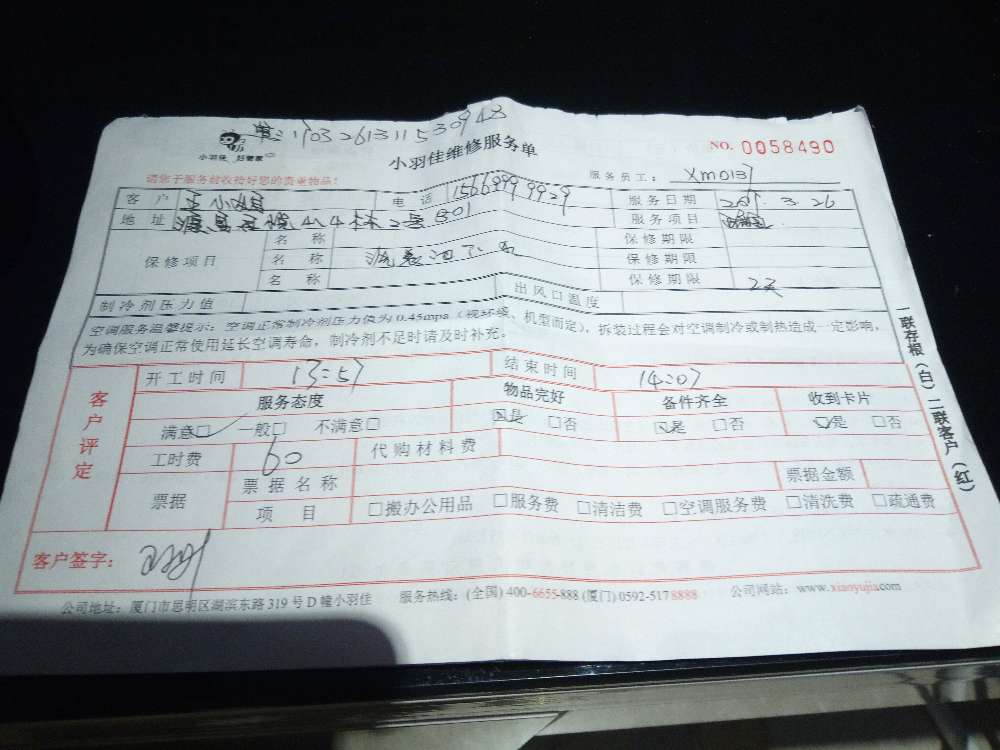 170326131153 0948
小羽佳 好管家
小羽佳维修服务单
NO. 0058490
请您于服务前收拾好您的贵重物品!
服务员工: Xm0137
客户 王小姐 电话 服务日期 2017.3.26
地址 服务项目
保修项目 名称 保修期限
名称 保修期限
名称 保修期限 2天
制冷剂压力值 出风口温度
空调服务温馨提示: 空调正常制冷剂压力值为 0.45mpa (视环境、机型而定), 拆装过程会对空调制冷或制热造成一定影响,
为确保空调正常使用延长空调寿命, 制冷剂不足时请及时补充。
客户评定
开工时间 13:57 结束时间 14:07
服务态度 物品完好 备件齐全 收到卡片
满意□ 一般□ 不满意□ □是 □否 □是 □否 □是 □否
工时费 60 代购材料费
票据 票据名称 票据金额
项目 □搬办公用品 □服务费 □清洁费 □空调服务费 □清洗费 □疏通费
客户签字:
公司地址: 厦门市思明区湖滨东路 319 号 D 幢小羽佳 服务热线: (全国) 400-6655-888 (厦门) 0592-5178888 公司网站: www.xiaoyujia.com
一联存根(白) 二联客户(红)